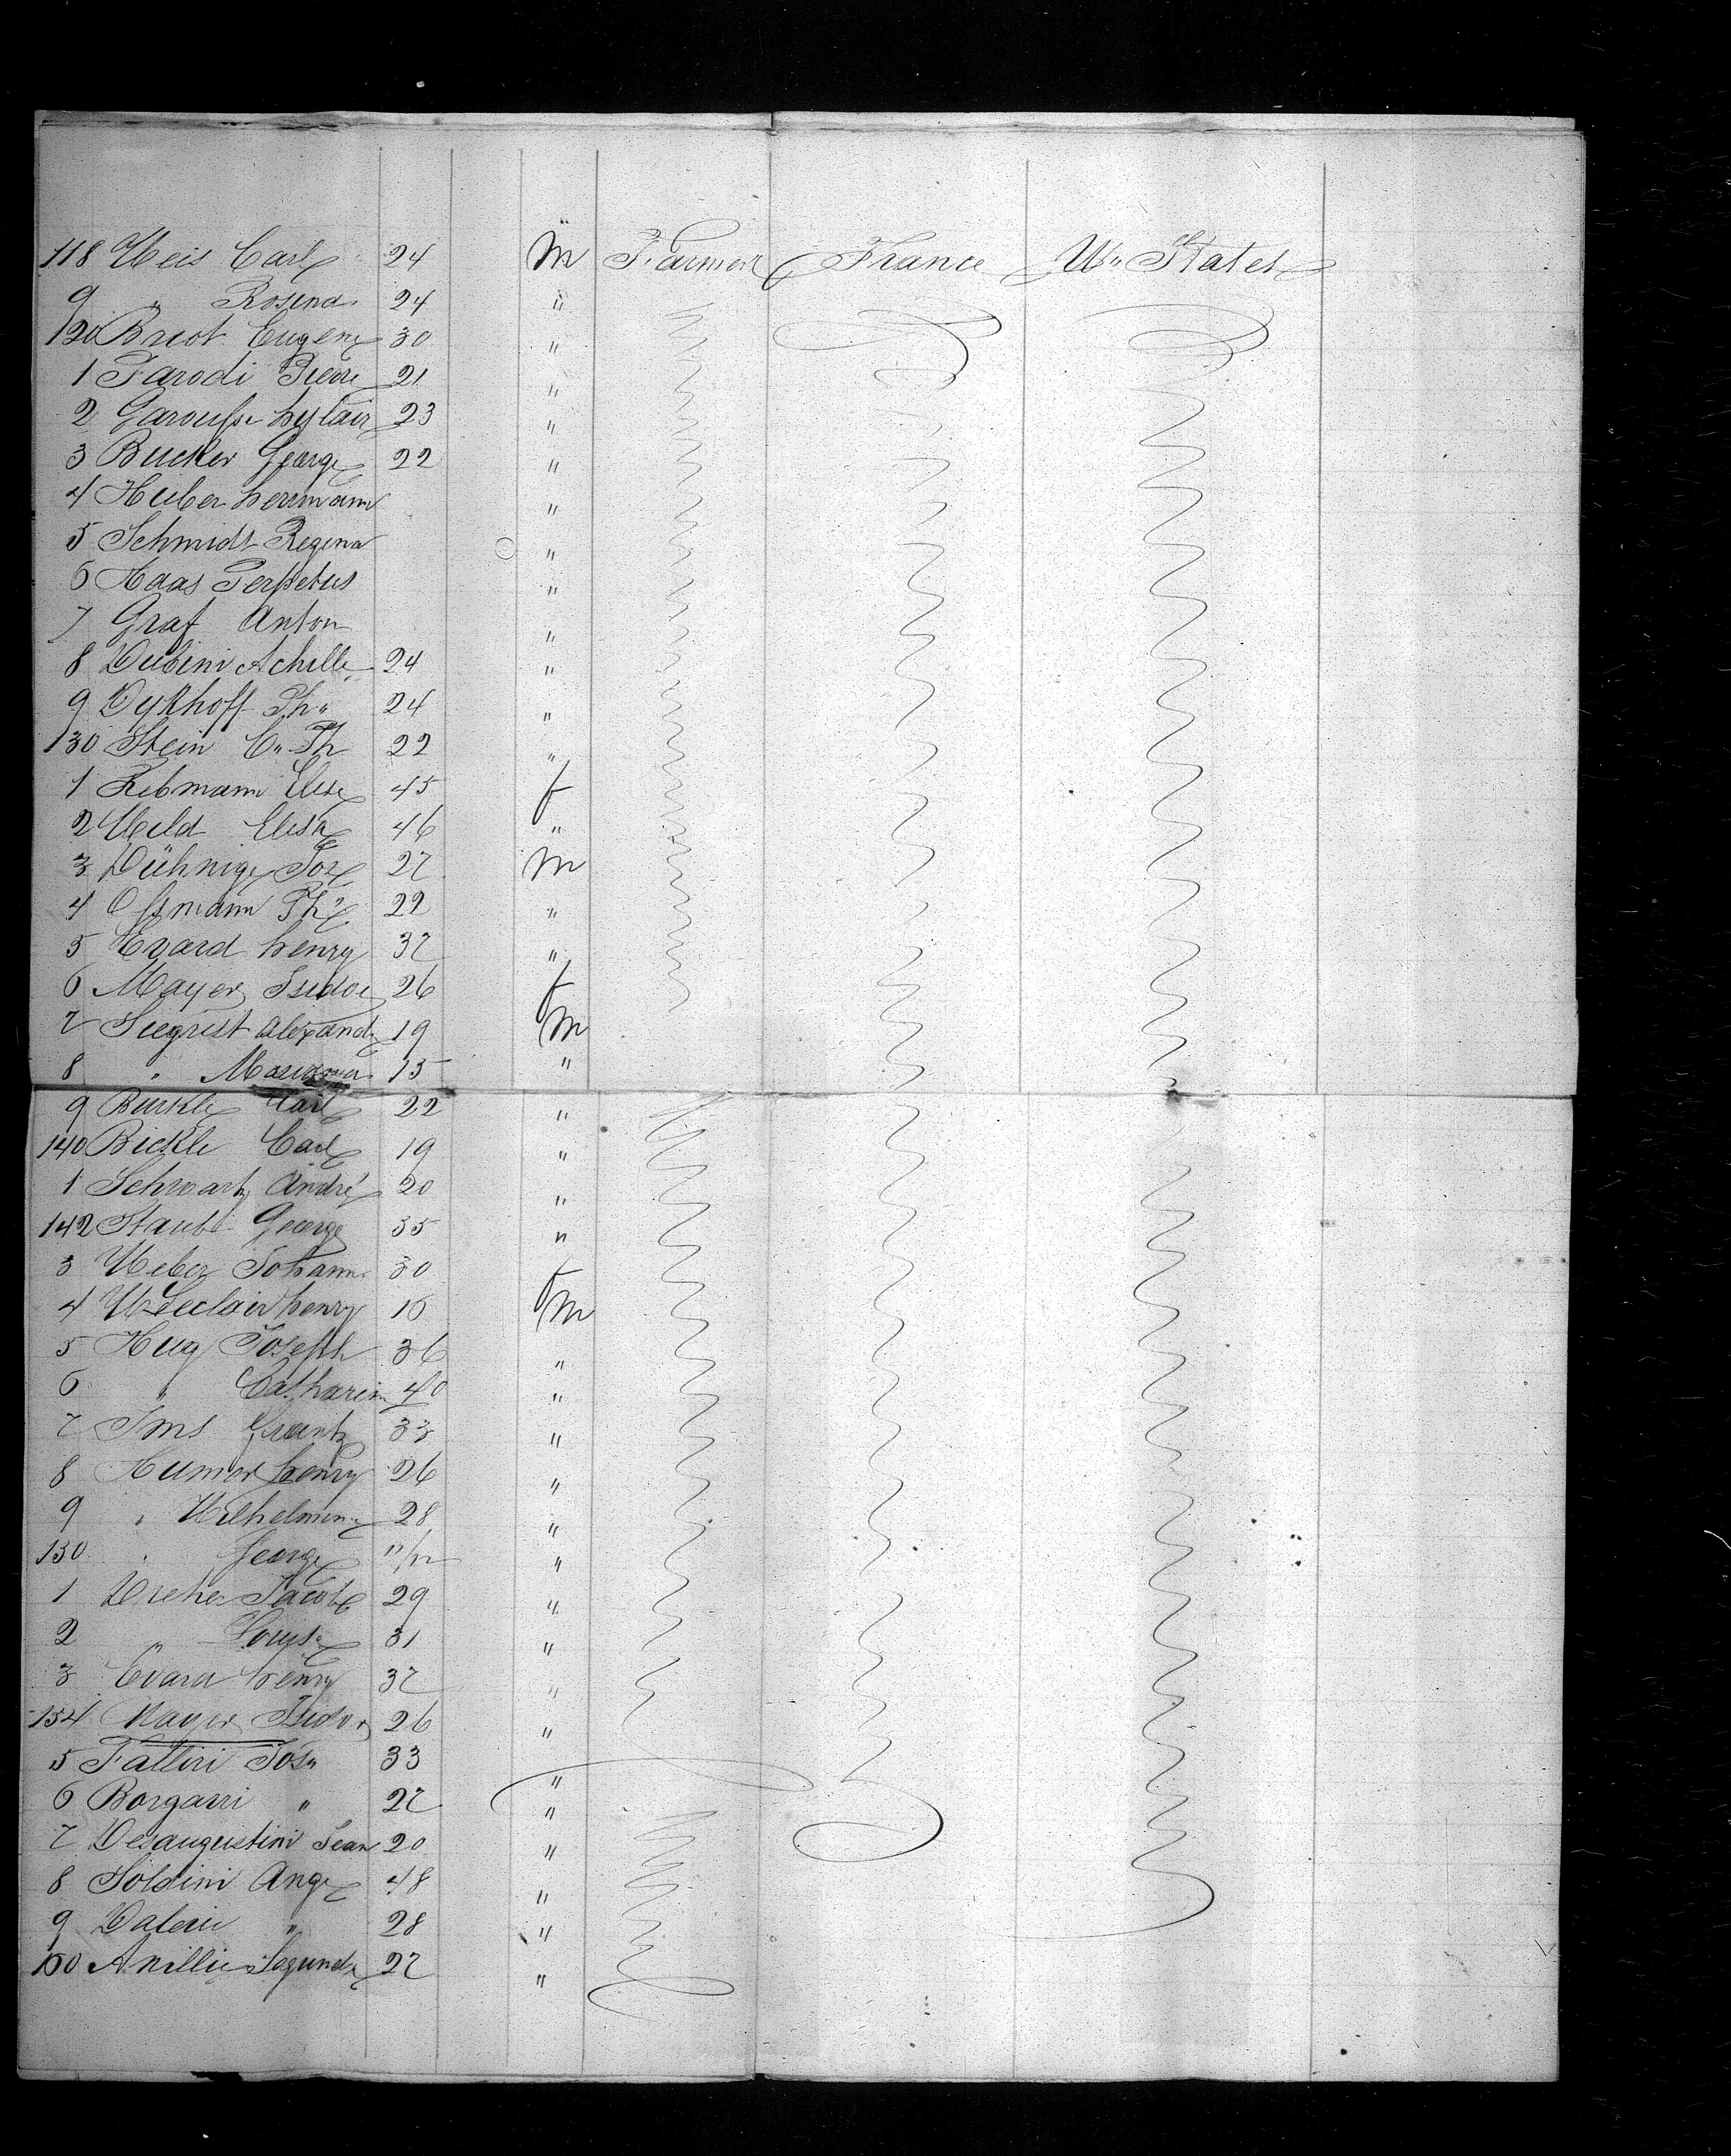 118 Weis Carl 24 M Farmer France U" States
9 " Rosina 24 "
120 Briot Eugene 30 "
1 Parodi Pierre 21 "
2 Garousse hylair 23 "
3 Bucker George 22 "
4 Huber herrmann "
5 Schmidt Regina "
6 Haas Perpetus "
7 Graf Anton "
8 Dubini Achille 24 "
9 Dykhoff Th" 24 "
130 Stein C" Th 22 "
1 Rebmann Elise 45 f
2 Wild Elisa 46 "
3 Dühnige Jos 27 M
4 Ossmann Th" 22 "
5 Evard henry 37 "
6 Mayer Isidor 26 f
7 Siegrist Alexand 19 M
8 " 15 "
9 Burkle Carl 22 "
140 Bickle Carl 19 "
1 Schwartz André 20 "
142 Staub George 35 "
3 Weber Johann 30 f
4 henry 16 M
5 Hug Joseph 36 "
6 " Catharin 40 "
7 Ims Frantz 33 "
8 Humer henry 26 "
9 " Wilhelmine 28 "
150 " George 11/12 "
1 Dreher Jacob 29 "
2 " Louise 31 "
3 Evard henry 37 "
154 Mayer Isidor 26 "
5 Fattiri Jos" 33 "
6 Borgarri " 27 "
7 Desaugustini Jean 20 "
8 Soldini Ange 48 "
9 " 28 "
160 Segund 27 "